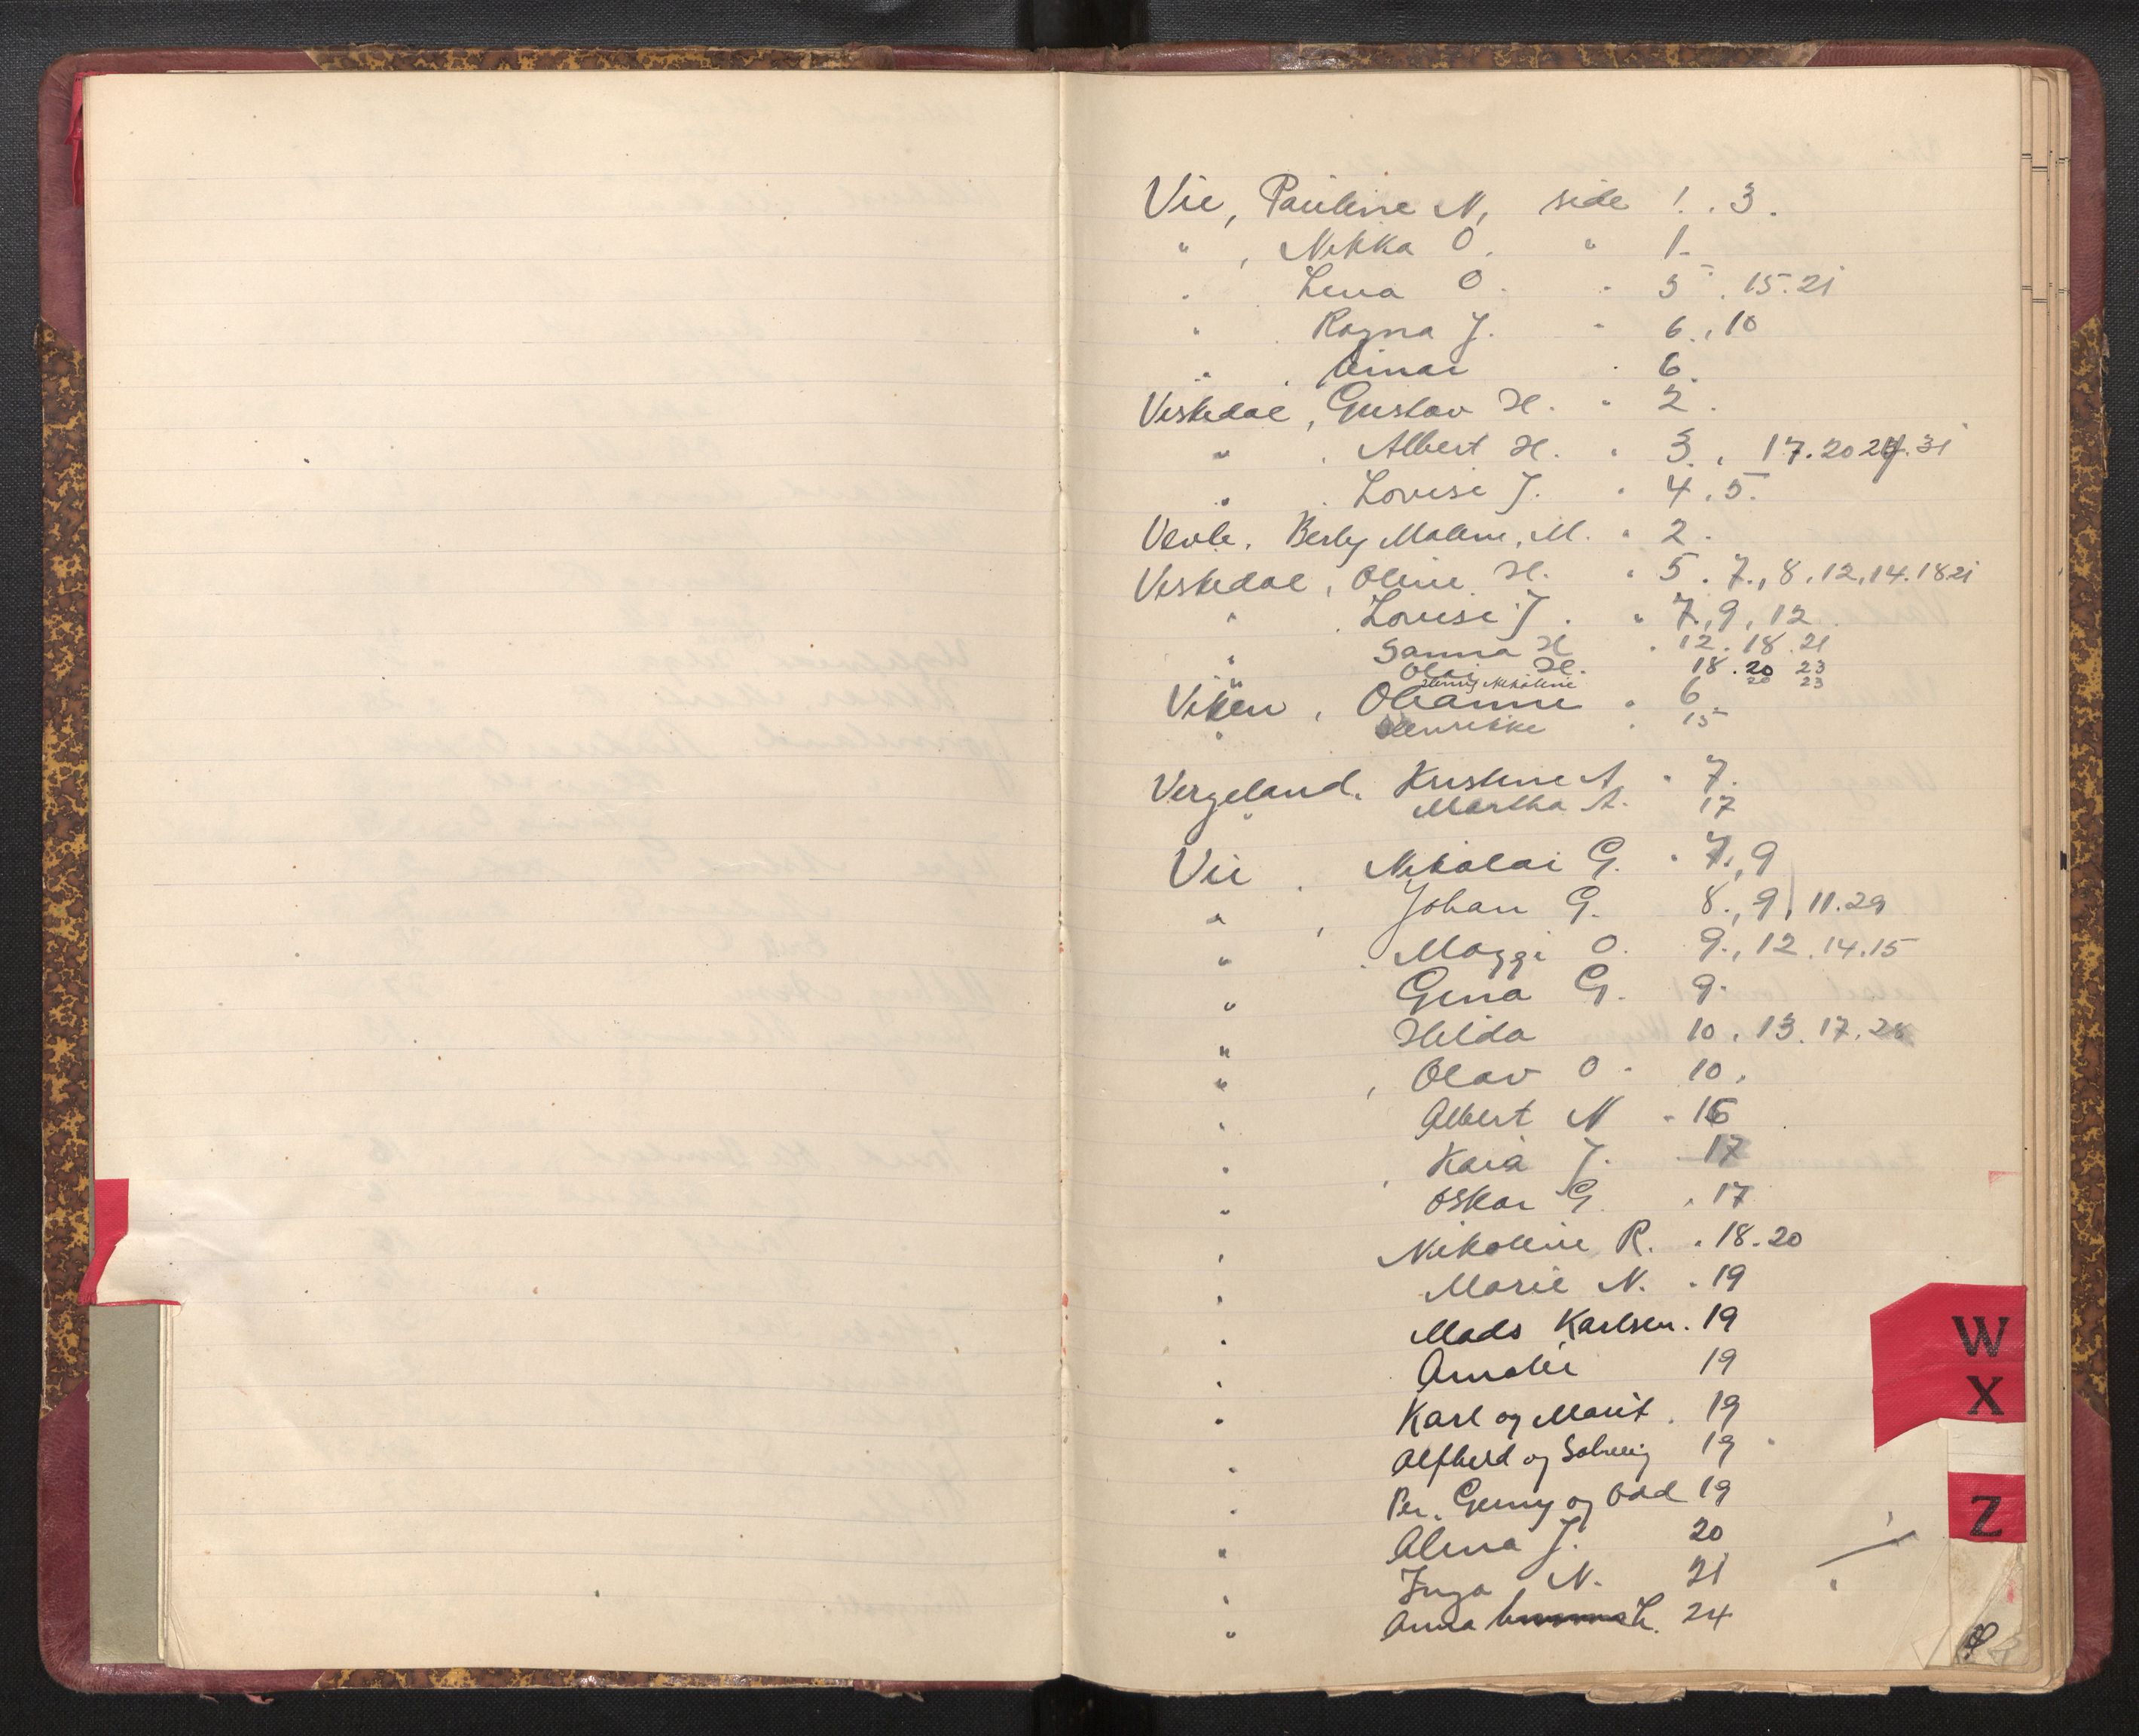 Vie, Pauline N, side 1. . 3.
" , Nikka O. " 1.
. Lena O. . 5. . 15. 21
. Ragna J. . 6. , 10
" . Einar . 6.
Viskedal, Gustav H. . 2.
" . Albert H. . 3. . 17. 20 31
" . Lovise J. . 4. 5.
Berby Maline, M. . 2.
Viskedal, Oline H. . 5. 7., 8. 12, 14. 18 21
" . Lovise J. " 7, 9, 12.
" Sanna H . 12. 18. 21
" Olai H. 18. 20 23
Henny Nikoline 20 23
Viken, Olianne . 6.
" Henrikke . 15
Vergeland. Kristine A . 7.
" Martha A. 17
Vie . Nikolai G. . 7., 9
" , Johan G. 8., 9, 11. 29
" . Maggi O. 9., 12. 14. 15
" Gina G. 9.
" Hilda 10. 13. 17. 28
" , Olav O. 10.
. Albert N . 16
. Kaia J. . 17
" Oskar G. . 17
. Nikoline R. . 18. 20
. Marie N. . 19
. Mads Karlsen. 19
. Amalie 19
. Karl og Marit. 19
. Alfhild og Solveig 19
. Per, Gerny og Odd 19
" Alina J. 20
. Inga N. 21
" Anna L. 24
W
X
Z